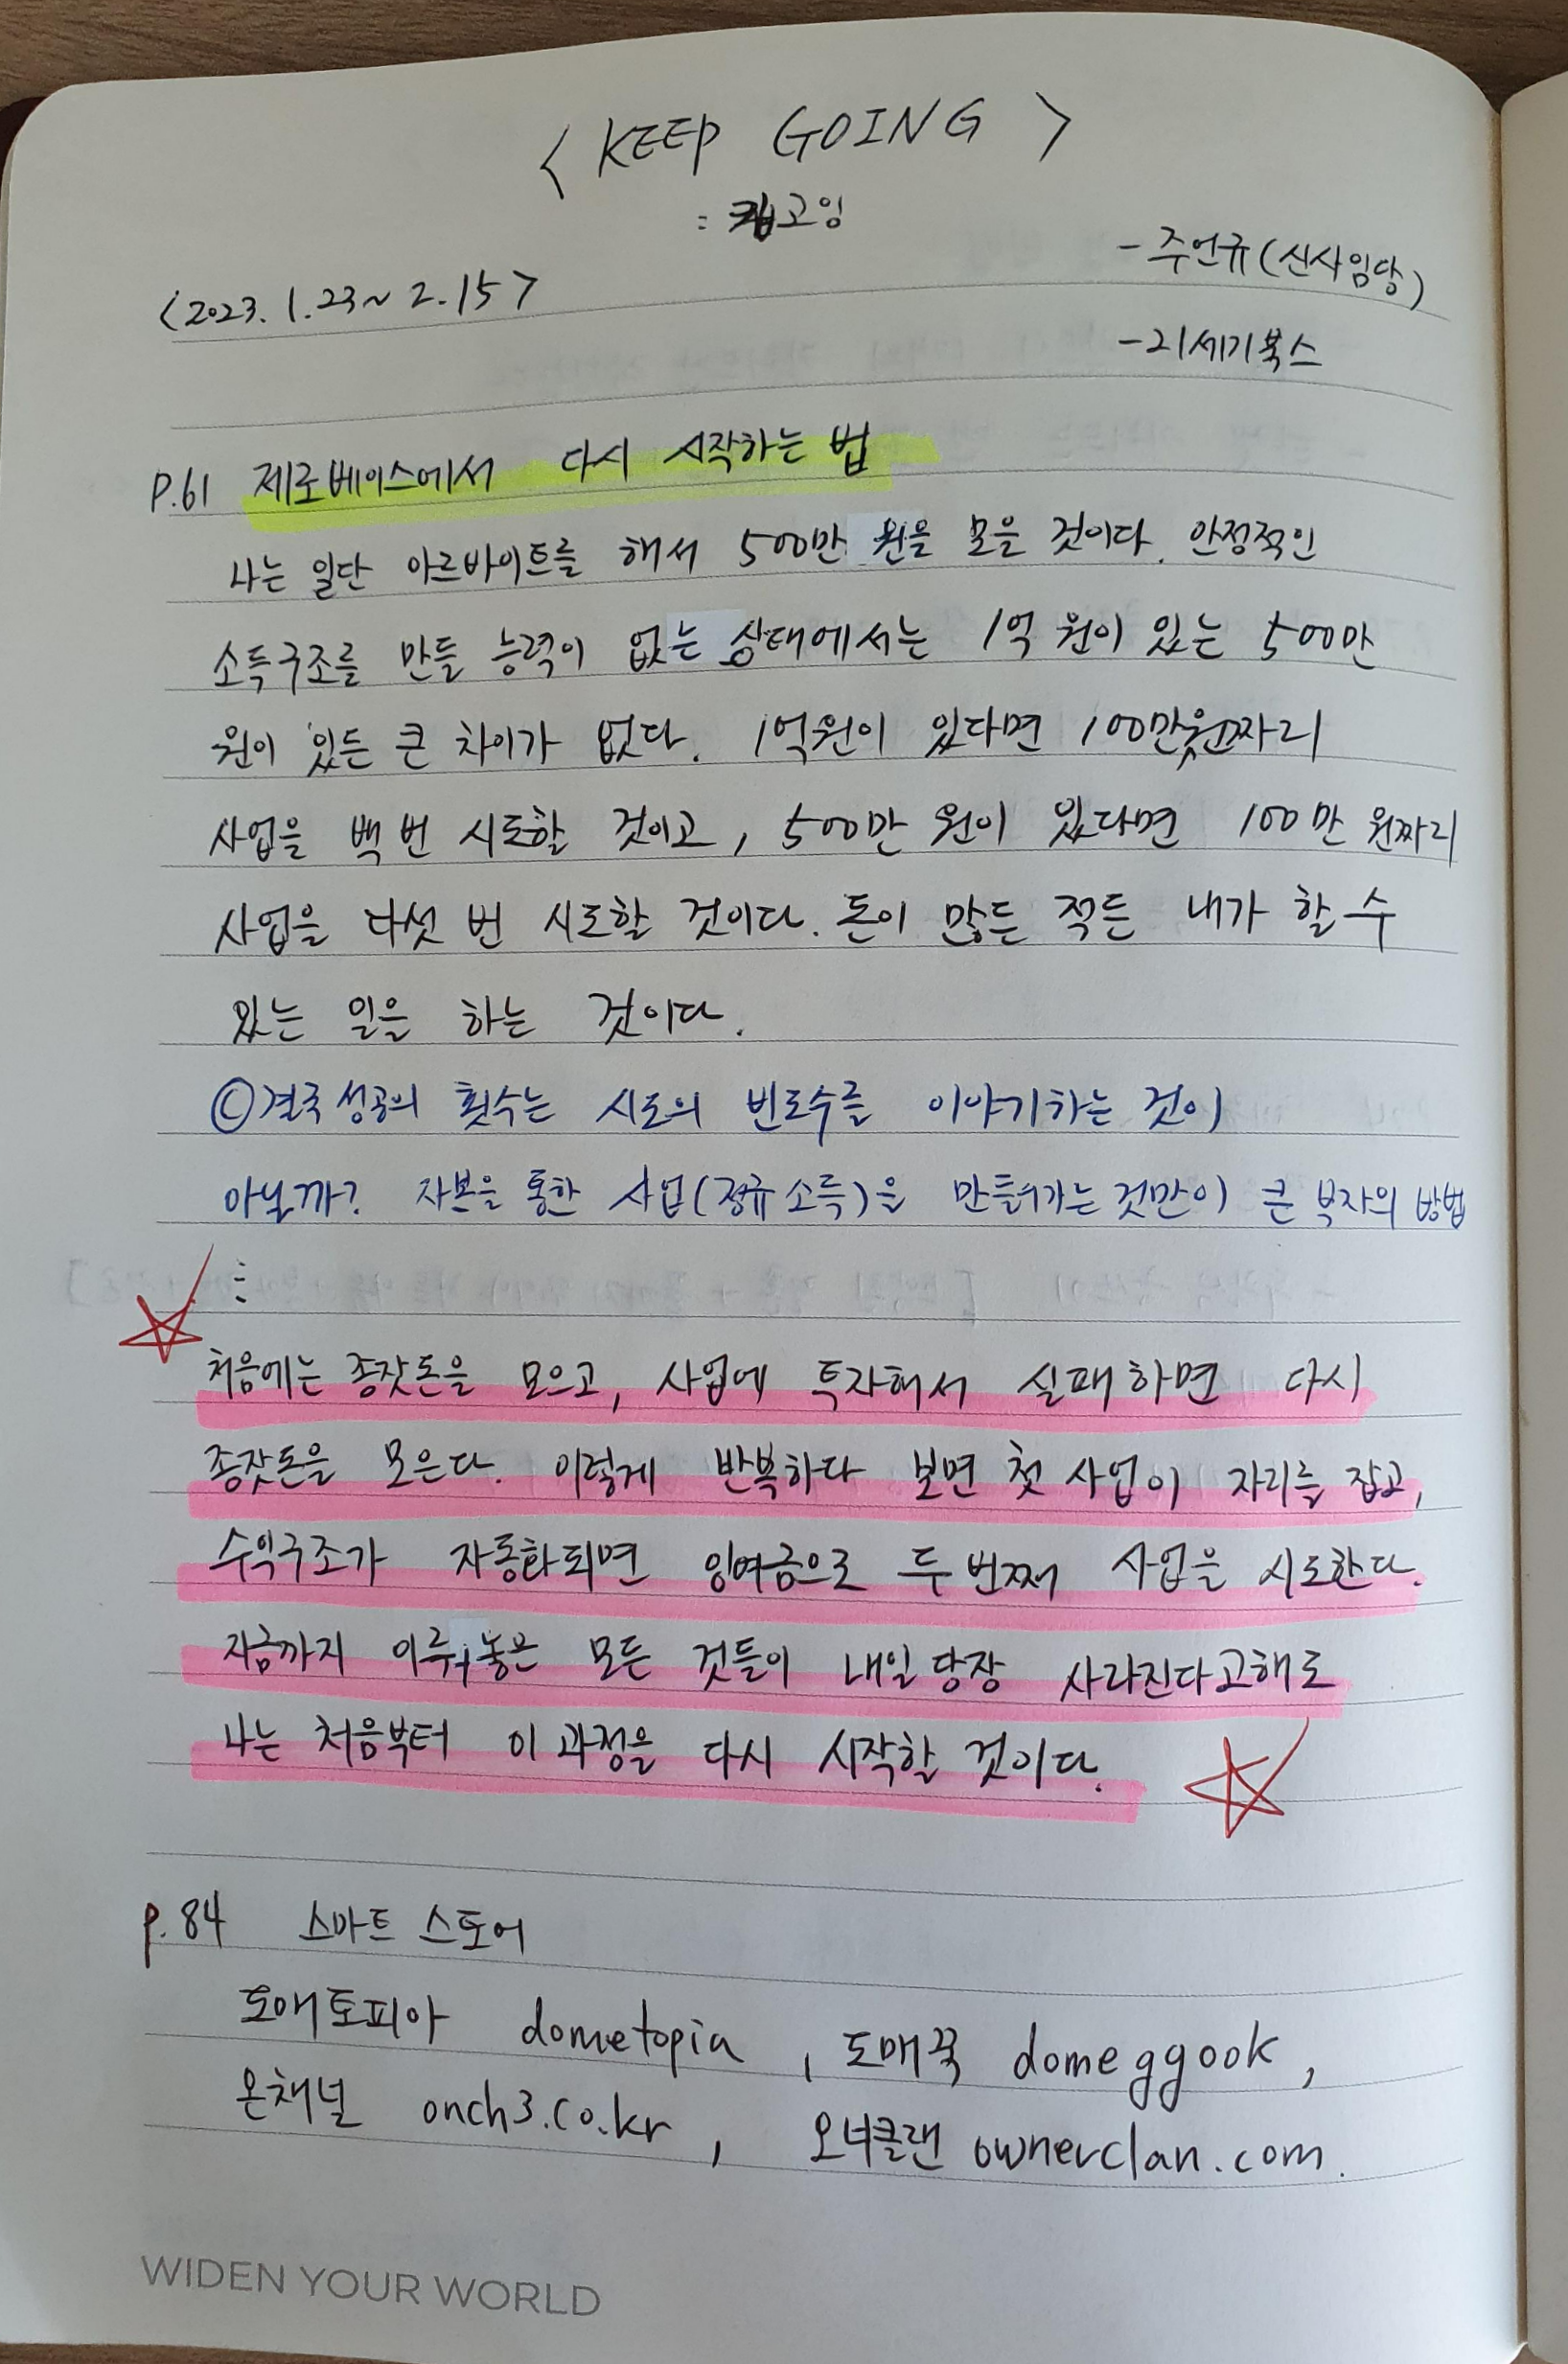 < KEEP GOING >
: 킵고잉
- 주언규(신사임당)
<2023. 1.23~ 2.15>
- 21세기북스
P.61 제로베이스에서 다시 시작하는 법
나는 일단 아르바이트를 해서 500만 원을 모을 것이다. 안정적인
소득구조를 만들 능력이 없는 상태에서는 1억 원이 있는 500만
원이 있든 큰 차이가 없다. 1억원이 있다면 100만원짜리
사업을 백 번 시도할 것이고, 500만 원이 있다면 100만 원짜리
사업을 다섯 번 시도할 것이다. 돈이 많든 적든 내가 할 수
있는 일을 하는 것이다.
ⓒ결국 성공의 횟수는 시도의 빈도수를 이야기하는 것이
아닐까? 자본을 통한 사업(정규소득)을 만들어가는 것만이 큰 부자의 방법
⋮
처음에는 종잣돈을 모으고, 사업에 투자해서 실패하면 다시
종잣돈을 모은다. 이렇게 반복하다 보면 첫 사업이 자리를 잡고,
수익구조가 자동화되면 잉여금으로 두 번째 사업을 시도한다.
지금까지 이루어놓은 모든 것들이 내일 당장 사라진다고해도
나는 처음부터 이 과정을 다시 시작할 것이다.
p.84 스마트 스토어
도매토피아 dometopia , 도매꾹 domeggook,
온채널 onch3.co.kr , 오너클랜 ownerclan.com.
WIDEN YOUR WORLD